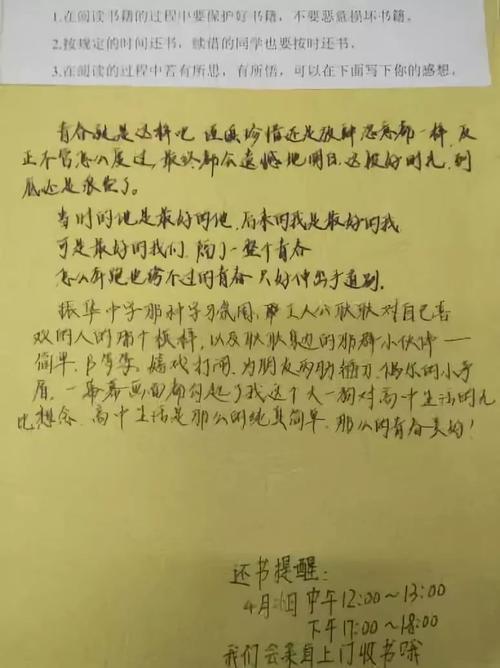 1.在阅读书籍的过程中要保护好书籍，不要恶意损坏书籍。
2.按规定的时间还书，续借的同学也要按时还书。
3.在阅读的过程中若有所思，有所悟，可以在下面写下你的感想。
青春就是这样吧 珍惜还是放肆恣意都一样，反
正不管怎么度过，最终都会遗憾地明白，这段好时光，到
底还是浪费了。
当时的他是最好的他，后来的我是最好的我
可是最好的我们，隔了一整个青春
怎么奔跑也跨不过的青春 只好伸出手道别。
振华中学那种学习氛围，耿耿对自己喜
欢的人的那个模样，以及耿耿身边的那群小伙伴——
简单、嬉戏打闹，为朋友两肋插刀，偶尔的小矛
盾，一幕幕画面都勾起了我这个大一狗对高中生活的无
比想念，高中生活是那么的纯真简单，那么的青春美好！
还书提醒：
4月 日 中午12:00～13:00
下午17:00～18:00
我们会亲自上门收书哦